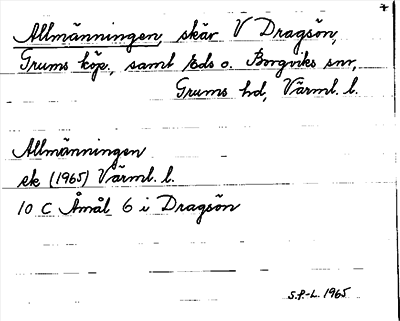 Allmänningen, skär V Dragsön,
Grums köp., samt Eds o. Borgviks snr,
Grums hd, Värml. l.
Allmänningen
ek (1965) Värml. l.
10 C Åmål 6 i Dragsön
S.P.-L. 1965